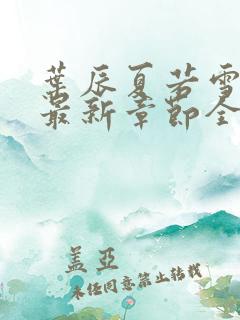 葉辰夏若雪
最新章節全
盖亚
未经同意禁止转载